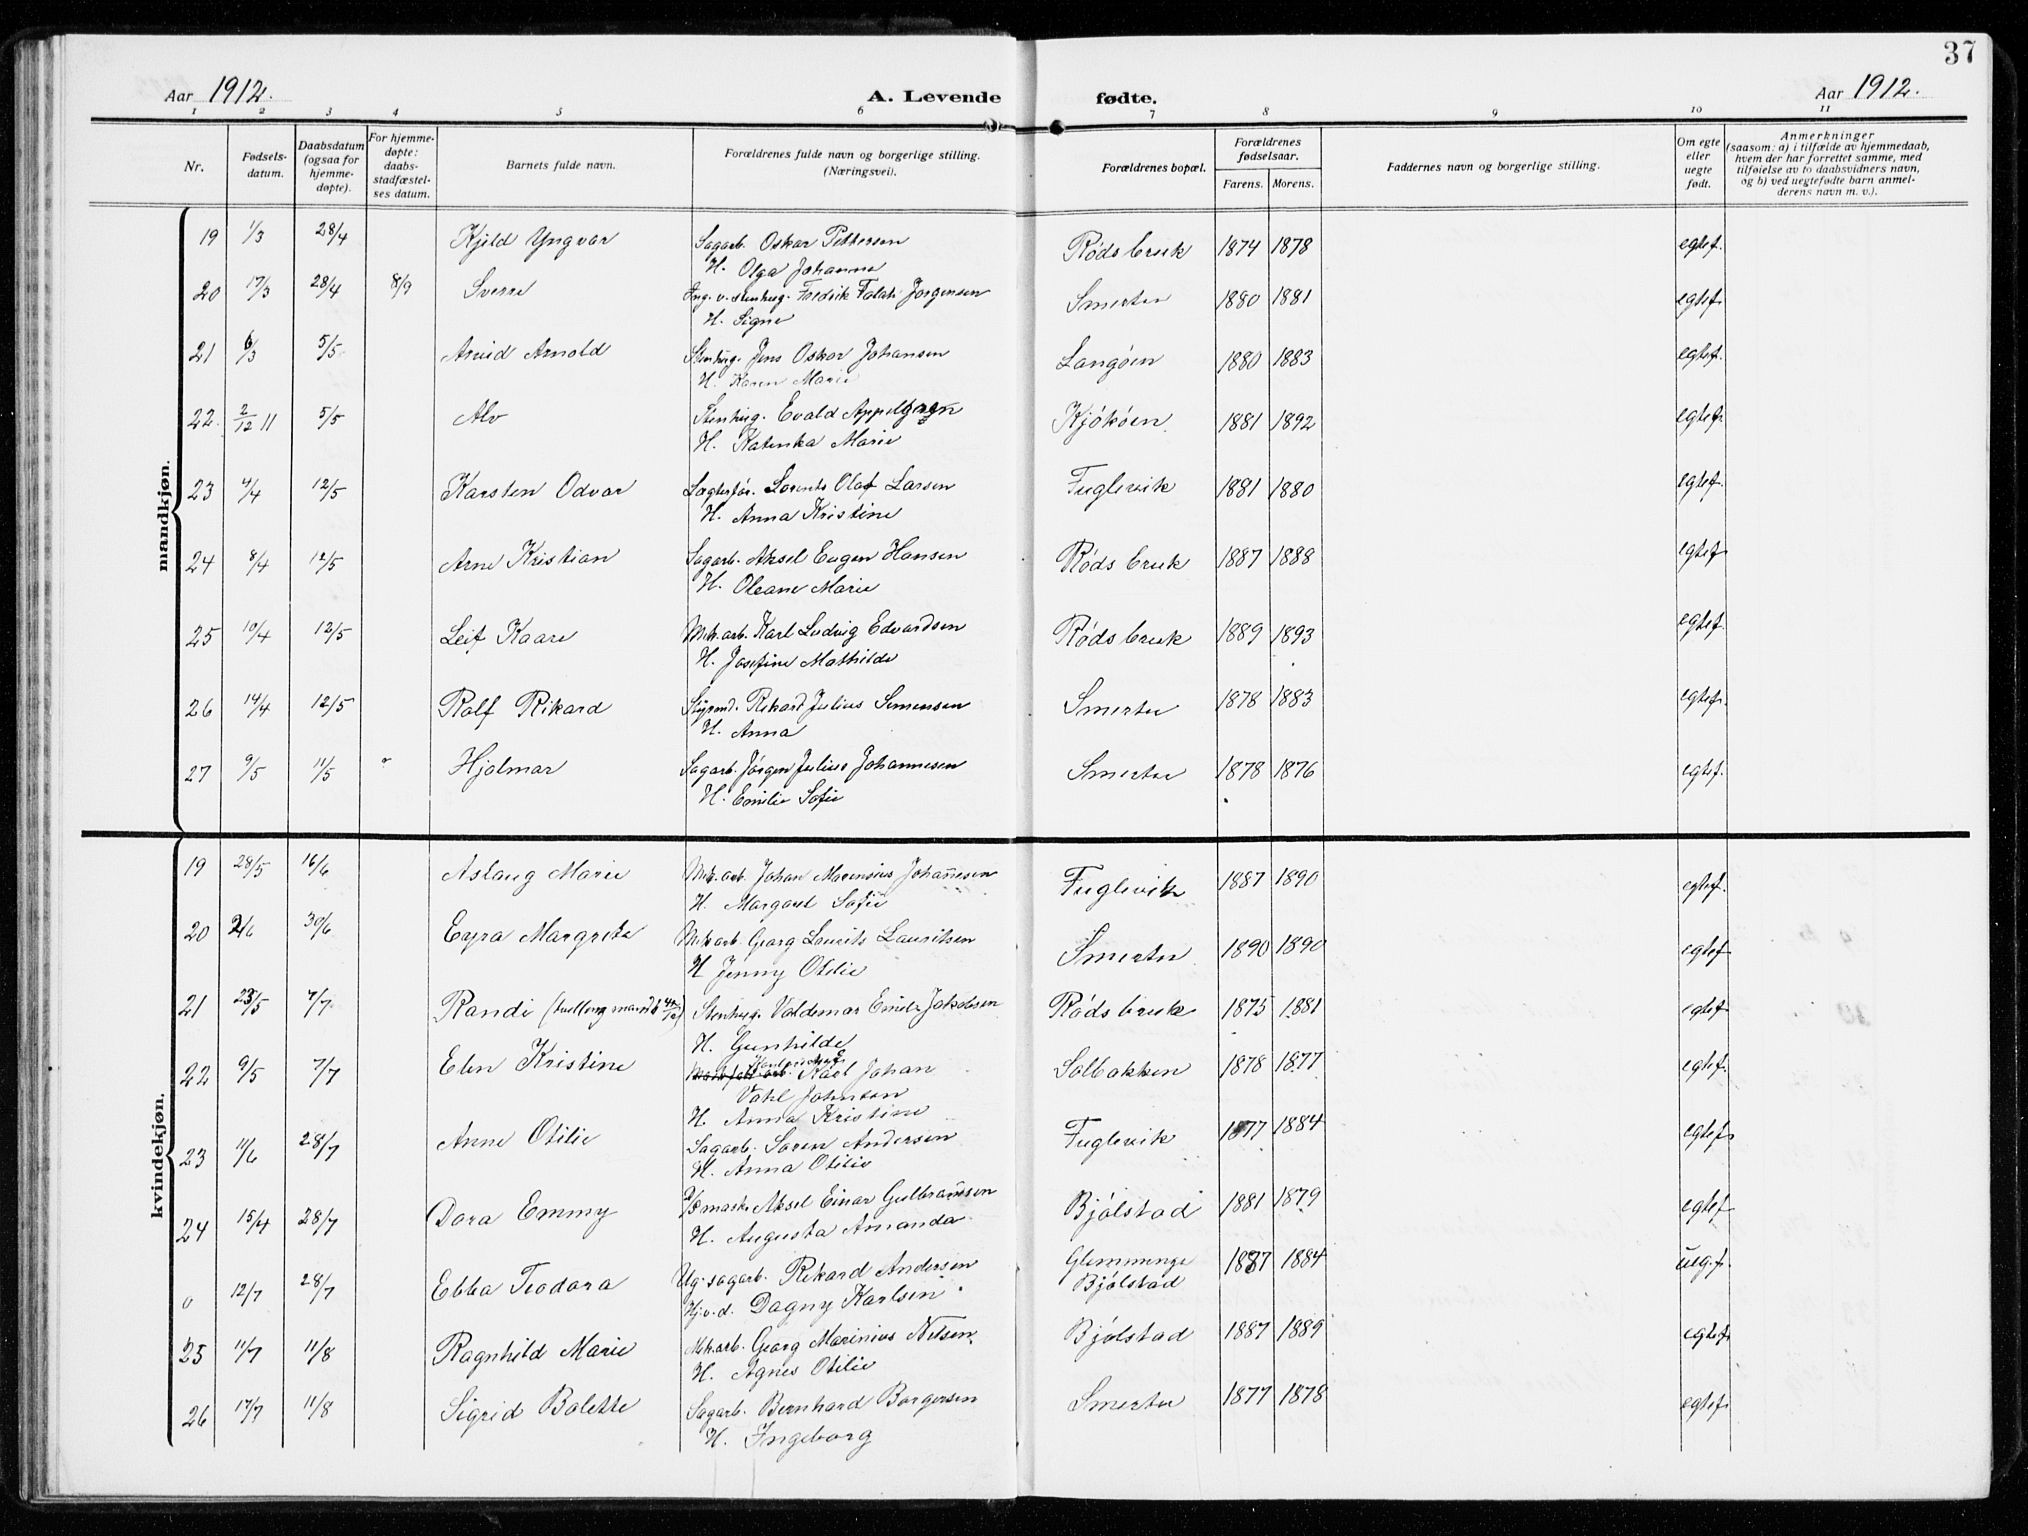 37
Aar 1912. A. Levende fødte. Aar 1912.
1 2 3 4 5 6 7 8 9 10 11
Nr. Fødsels-datum. Daabsdatum (ogsaa for hjemme-døpte). For hjemme-døpte: daabs-stadfæstel-ses datum. Barnets fulde navn. Forældrenes fulde navn og borgerlige stilling. (Næringsvei). Forældrenes bopæl. Forældrenes fødselsaar. Farens. Morens. Faddernes navn og borgerlige stilling. Om egte eller uegte født. Anmerkninger (saasom: a) i tilfælde av hjemmedaab, hvem der har forrettet samme, med tilføielse av to daabsvidners navn, og b) ved uegtefødte barn anmel-derens navn m. v.).
mandkjøn.
19 1/3 28/4 Kjeld Yngvar Sagarb. Oskar Pettersen Røds bruk 1874 1878 egtef.
H. Olga Johanne
20 17/3 28/4 8/9 Sverre Ing. v. stenhug. Fredrik Jørgensen Smertu 1880 1881 egtef.
H. Signe
21 6/3 5/5 Arvid Arnold Stenhug. Jens Oskar Johansen Langøen 1880 1883 egtef.
H. Karen Marie
22 2/12 11 5/5 Alv Stenhug. Evald Appelgren Kjøkøen 1881 1892 egtef.
H. Katinka Marie
23 4/4 12/5 Karsten Odvar Lægterfor. Lorents Olaf Larsen Fuglevik 1881 1880 egtef.
H. Anna Kristine
24 8/4 12/5 Arne Kristian Sagarb. Aksel Eugen Hansen Røds bruk 1887 1888 egtef.
H. Oleane Marie
25 10/4 12/5 Leif Kaare Mek. arb. Karl Ludvig Edvardsen Røds bruk 1889 1893 egtef.
H. Josefine Mathilde
26 14/4 12/5 Rolf Rikard Styrmd. Rikard Julius Simensen Smertu 1878 1883 egtef.
H. Anna
27 9/5 11/5 Hjalmar Sagarb. Jørgen Julius Johannesen Smertu 1878 1876 egtef.
H. Emilie Sofie
kvindekjøn.
19 28/5 16/6 Aslaug Marie Mek. arb. Johan Marensius Johannesen Fuglevik 1887 1890 egtef.
H. Margaret Sofie
20 2/6 30/6 Eyra Margrete Mek arb. Georg Laurits Lauritsen Smertu 1890 1890 egtef
H Jenny Otilie
21 23/5 7/7 Randi (tvilling Stenhug. Valdemar Emil Jakobsen Røds bruk 1875 1881 egtef
H. Gunhilde
22 9/5 7/7 Elen Kristine Karl Johan Solbakken 1878 1877 egtef.
Vahl Johnsen
H. Anna Kristine
23 11/6 28/7 Anne Otilie Sagarb. Søren Andersen Fuglevik 1877 1884 egtef.
H. Anna Otilie
24 15/4 28/7 Dora Emmy Aksel Einar Gulbrannsen Bjølstad 1881 1879 egtef
H. Augusta Amanda
0 12/7 28/7 Ebba Teodora Ug. sagarb. Rikard Andersen Glemminge 1887 1884 ueg. f.
Hj. v. d. Dagny Karlsen Bjølstad
25 11/7 11/8 Ragnhild Marie Mek. arb. Georg Marinius Nilsen Bjølstad 1887 1889 egtef.
H. Agnes Otilie
26 17/7 11/8 Sigrid Bolette Sagarb. Bernhard Borgersen Smertu 1877 1878 egtef.
H. Ingeborg